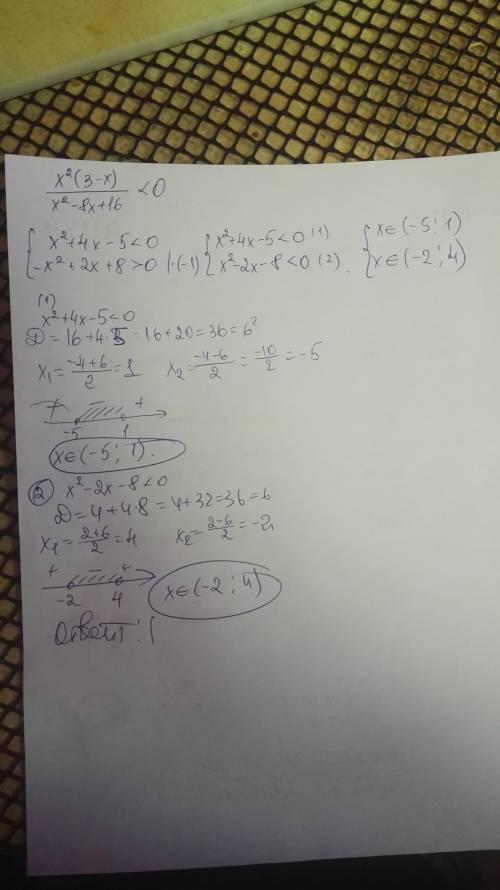 x²(3-x)/(x²-8x+16) <0
{x²+4x-5<0 {x²+4x-5<0 (1) {x∈(-5; 1)
{-x²+2x+8>0 |·(-1) {x²-2x-8<0 (2). {x∈(-2; 4)
(1)
x²+4x-5<0
D=16+4·5=16+20=36=6²
x₁=(-4+6)/2=1 x₂=(-4-6)/2=-10/2=-5
+ - +
-5 1
x∈(-5; 1).
② x²-2x-8<0
D=4+4·8=4+32=36=6
x₁=(2+6)/2=4 x₂=(2-6)/2=-2
+ - +
-2 4 x∈(-2; 4)
Ответ: (